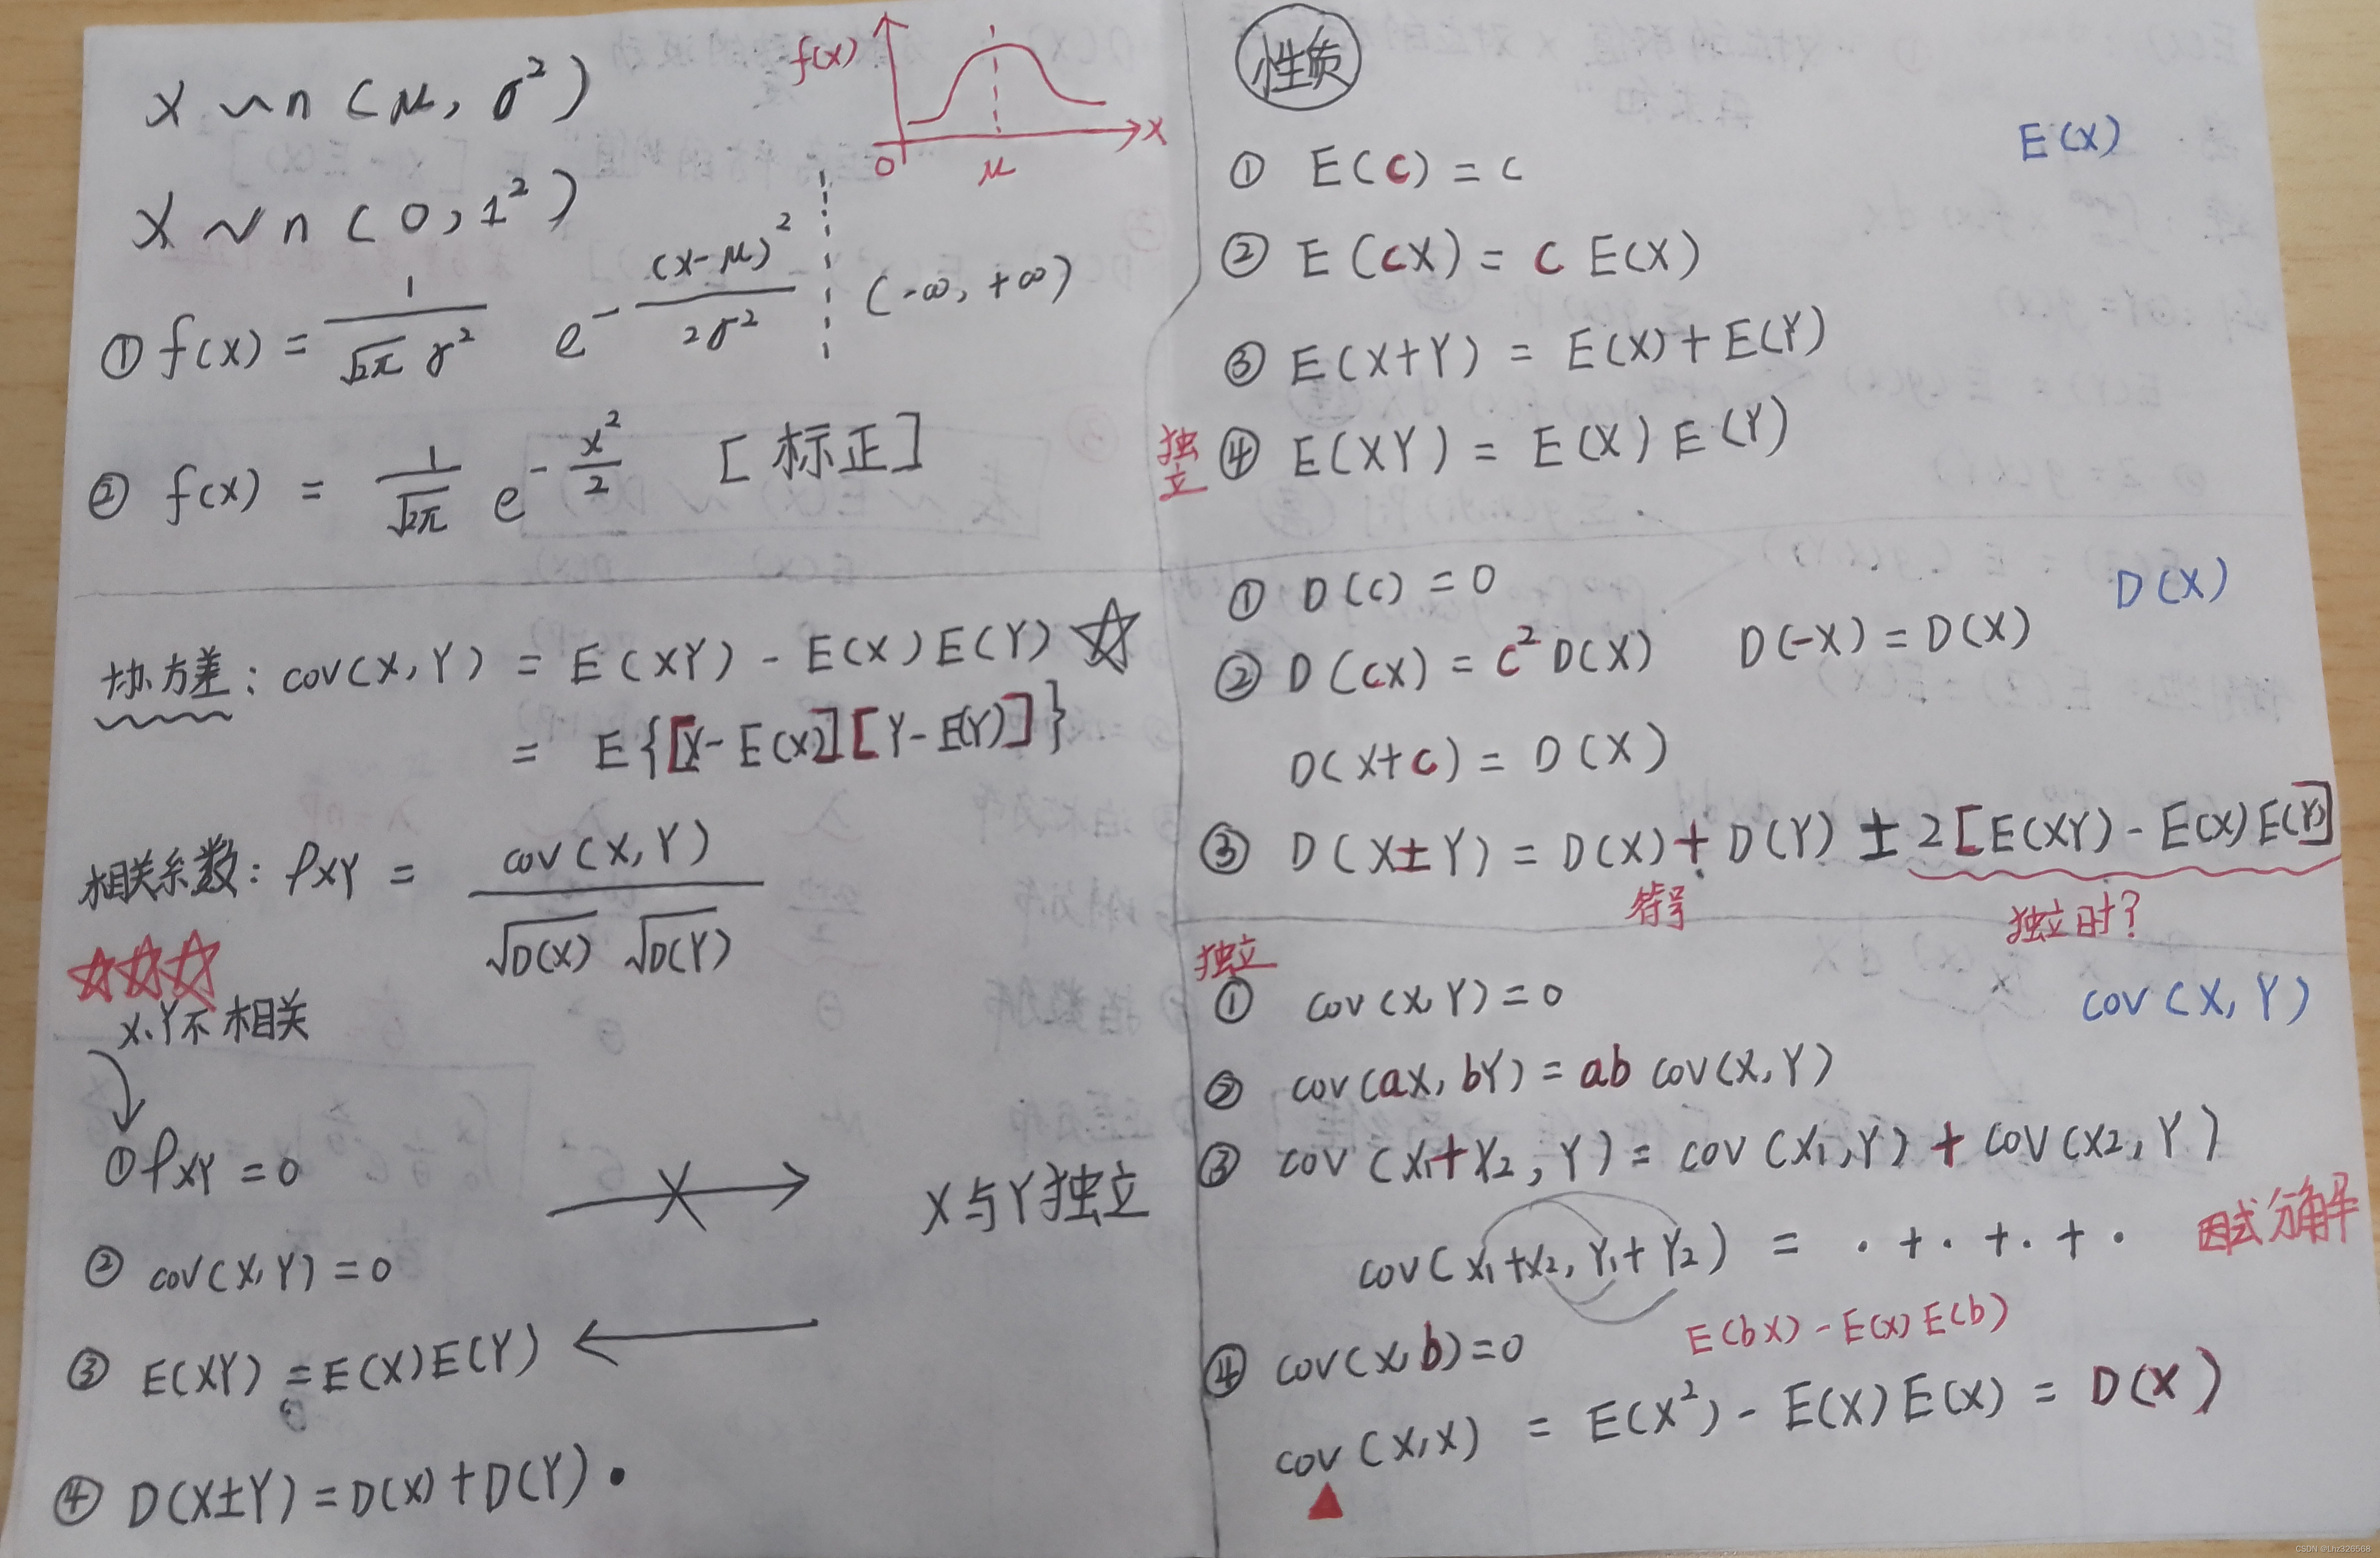 X ~ n ( μ, σ² )
X ~ n ( 0, 1² )
f(x)
0 μ x
① f(x) = 1/(√2π σ²) e^(-(x-μ)²/2σ²) (-∞, +∞)
② f(x) = 1/√2π e^(-x²/2) [标正]
协方差: cov(X, Y) = E(XY) - E(X)E(Y) ☆
= E{[X-E(X)][Y-E(Y)]}
相关系数: ρXY = cov(X, Y)/(√D(X) √D(Y))
☆☆☆
X、Y不相关
① ρXY = 0
X与Y独立
② cov(X, Y) = 0
③ E(XY) = E(X)E(Y)
④ D(X±Y) = D(X) + D(Y) .
性质
E(X)
① E(c) = c
② E(cX) = c E(X)
③ E(X+Y) = E(X) + E(Y)
独立 ④ E(XY) = E(X) E(Y)
D(X)
① D(c) = 0
② D(cX) = c² D(X) D(-X) = D(X)
D(X+c) = D(X)
③ D(X±Y) = D(X) + D(Y) ± 2[E(XY) - E(X)E(Y)]
符号 独立时?
独立
cov(X, Y)
① cov(X, Y) = 0
② cov(aX, bY) = ab cov(X, Y)
③ cov(X1+X2, Y) = cov(X1, Y) + cov(X2, Y)
cov(X1+X2, Y1+Y2) = · + · + · + · 因式分解
④ cov(X, b) = 0 E(bX) - E(X)E(b)
cov(X, X) = E(X²) - E(X)E(X) = D(X)
CSDN @Lhz326568